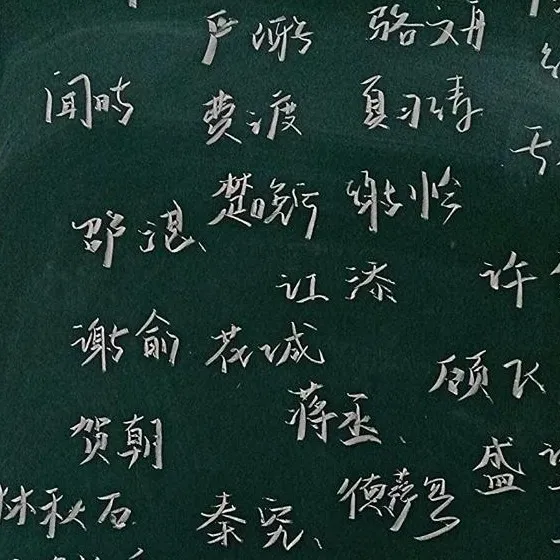 严
骆文舟
闻时
费渡
夏习清
楚晚宁
谢怜
邵湛
江添
许
谢俞
花城
顾飞
蒋丞
贺朝
盛
林秋石
秦究